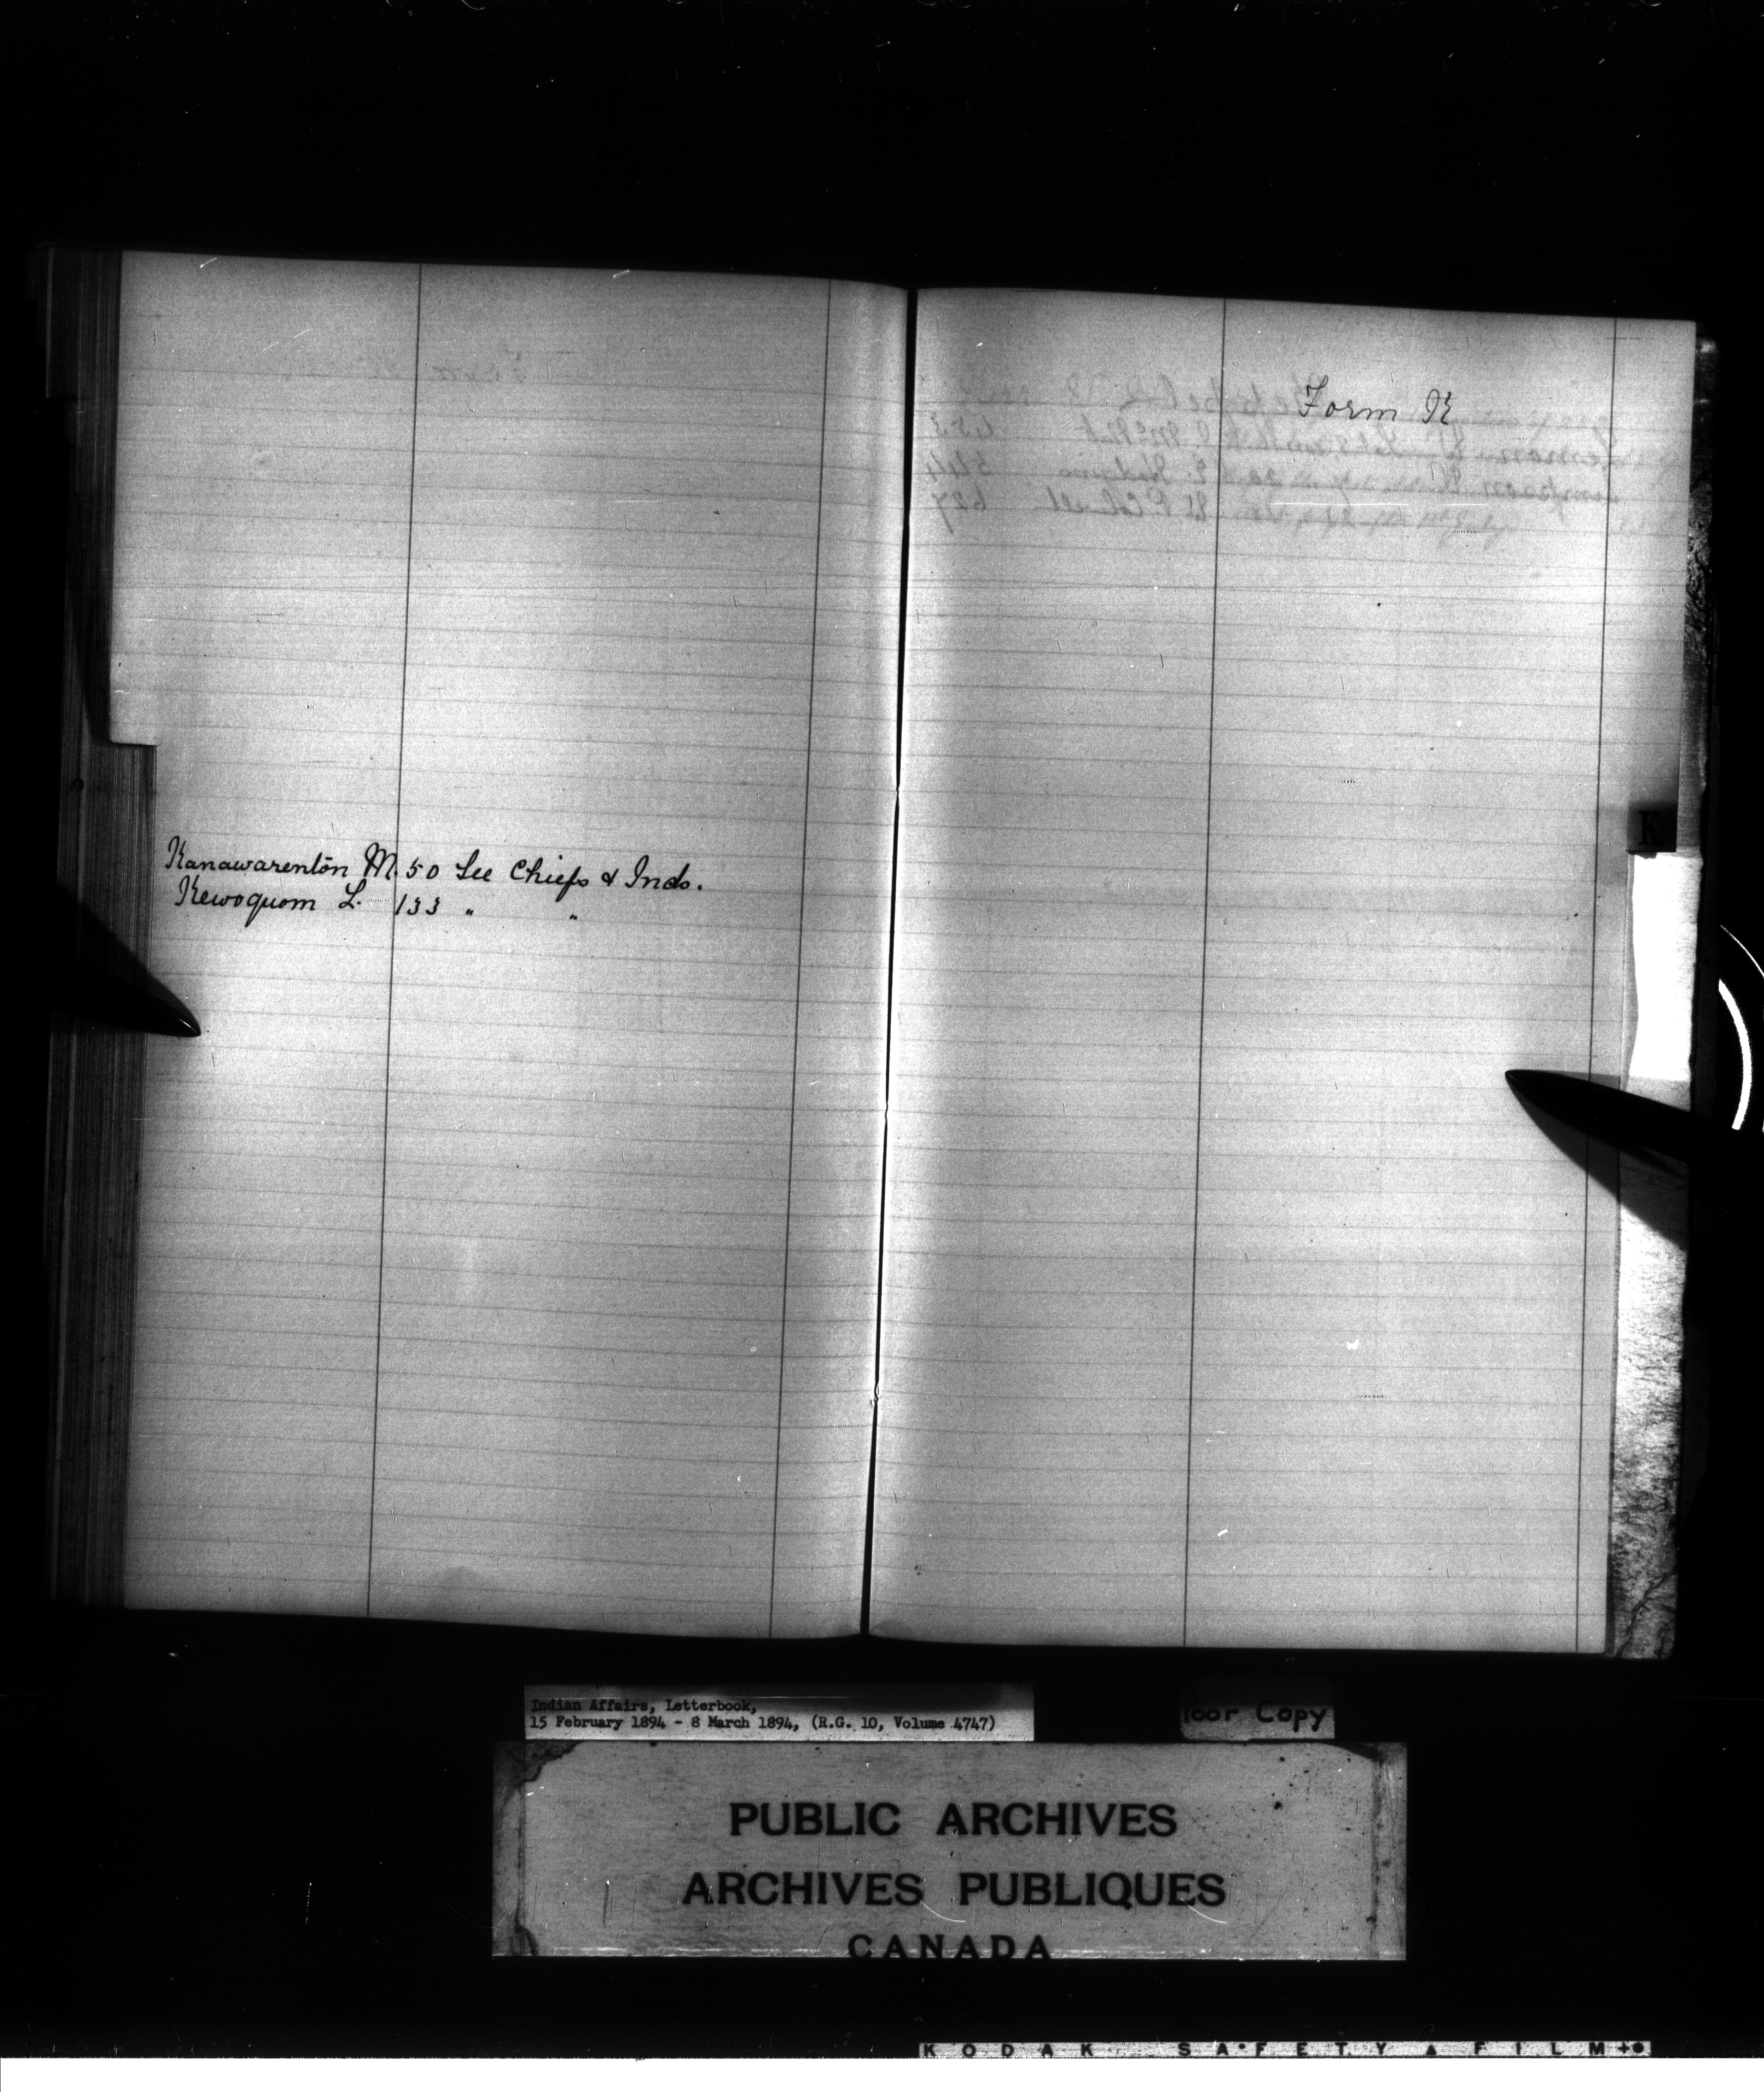 Kanawarentōn M. 50 See Chiefs & Inds.
Kewoquom L. 133 " "
Form K
K
Indian Affairs, Letterbook,
15 February 1894 - 8 March 1894, (R.G. 10, Volume 4747)
Poor Copy
PUBLIC ARCHIVES
ARCHIVES PUBLIQUES
CANADA
KODAK SAFETY FILM